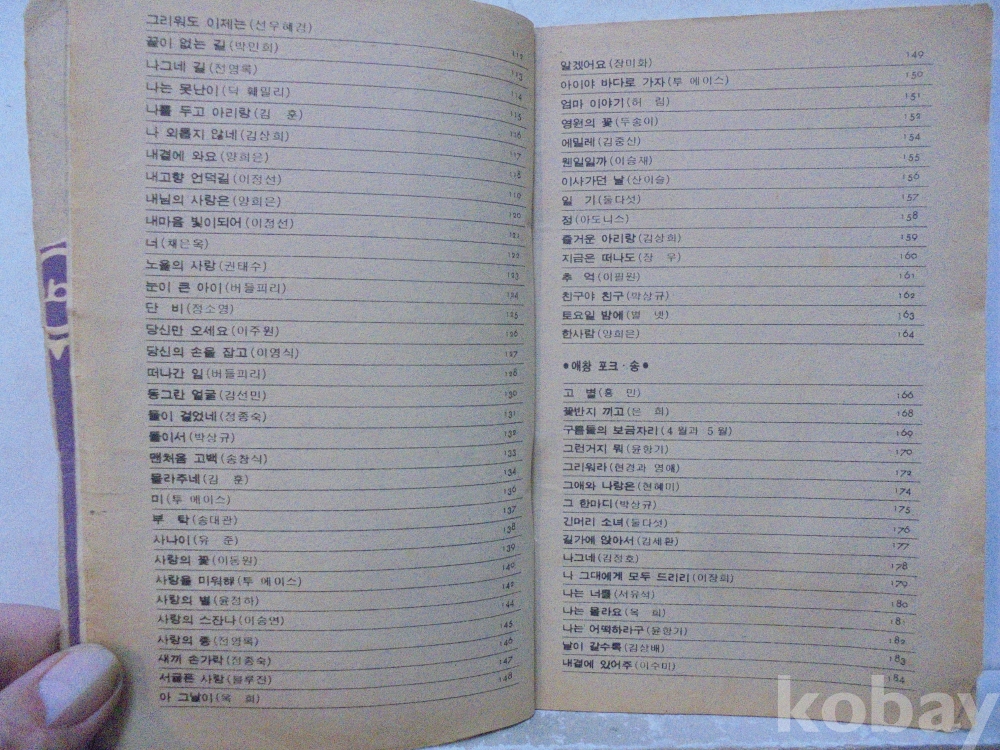 그리워도 이제는 (선우혜경) 112
끝이 없는 길 (박인희) 113
나그네 길 (전영록) 114
나는 못난이 (딕 훼밀리) 115
나를 두고 아리랑 (김 훈) 116
나 외롭지 않네 (김상희) 117
내곁에 와요 (양희은) 118
내고향 언덕길 (이정선) 119
내님의 사랑은 (양희은) 120
내마음 빛이되어 (이정선) 121
너 (채은옥) 122
노을의 사랑 (권태수) 123
눈이 큰 아이 (버들피리) 124
단 비 (정소영) 125
당신만 오세요 (이주원) 126
당신의 손을 잡고 (이영식) 127
떠나간 임 (버들피리) 128
동그란 얼굴 (김선민) 130
둘이 걸었네 (정종숙) 131
둘이서 (박상규) 132
맨처음 고백 (송창식) 133
몰라주네 (김 훈) 134
미 (투 에이스) 136
부 탁 (송대관) 137
사나이 (유 준) 138
사랑의 꽃 (이동원) 139
사랑을 미워해 (투 에이스) 140
사랑의 별 (윤정하) 142
사랑의 스잔나 (이승연) 144
사랑의 종 (전영록) 145
새끼 손가락 (정종숙) 146
서글픈 사랑 (블루진) 147
아 그날이 (옥 희) 148
알겠어요 (장미화) 149
아이야 바다로 가자 (투 에이스) 150
엄마 이야기 (허 림) 151
영원의 꽃 (두송이) 152
에밀레 (김중신) 154
웬일일까 (이승재) 155
이사가던 날 (산이슬) 156
일 기 (둘다섯) 157
정 (아도니스) 158
즐거운 아리랑 (김상희) 159
지금은 떠나도 (장 우) 160
추 억 (이필원) 161
친구야 친구 (박상규) 162
토요일 밤에 (별 셋) 163
한사람 (양희은) 164
●애창 포크·송●
고 별 (홍 민) 166
꽃반지 끼고 (은 희) 168
구름들의 보금자리 (4월과 5월) 169
그런거지 뭐 (윤항기) 170
그리워라 (현경과 영애) 172
그애와 나랑은 (현혜미) 174
그 한마디 (박상규) 175
긴머리 소녀 (둘다섯) 176
길가에 앉아서 (김세환) 177
나그네 (김정호) 178
나 그대에게 모두 드리리 (이장희) 179
나는 너를 (서유석) 180
나는 몰라요 (옥 희) 181
나는 어떡하라구 (윤항기) 182
날이 갈수록 (김상배) 183
내곁에 있어주 (이수미) 184
kobay